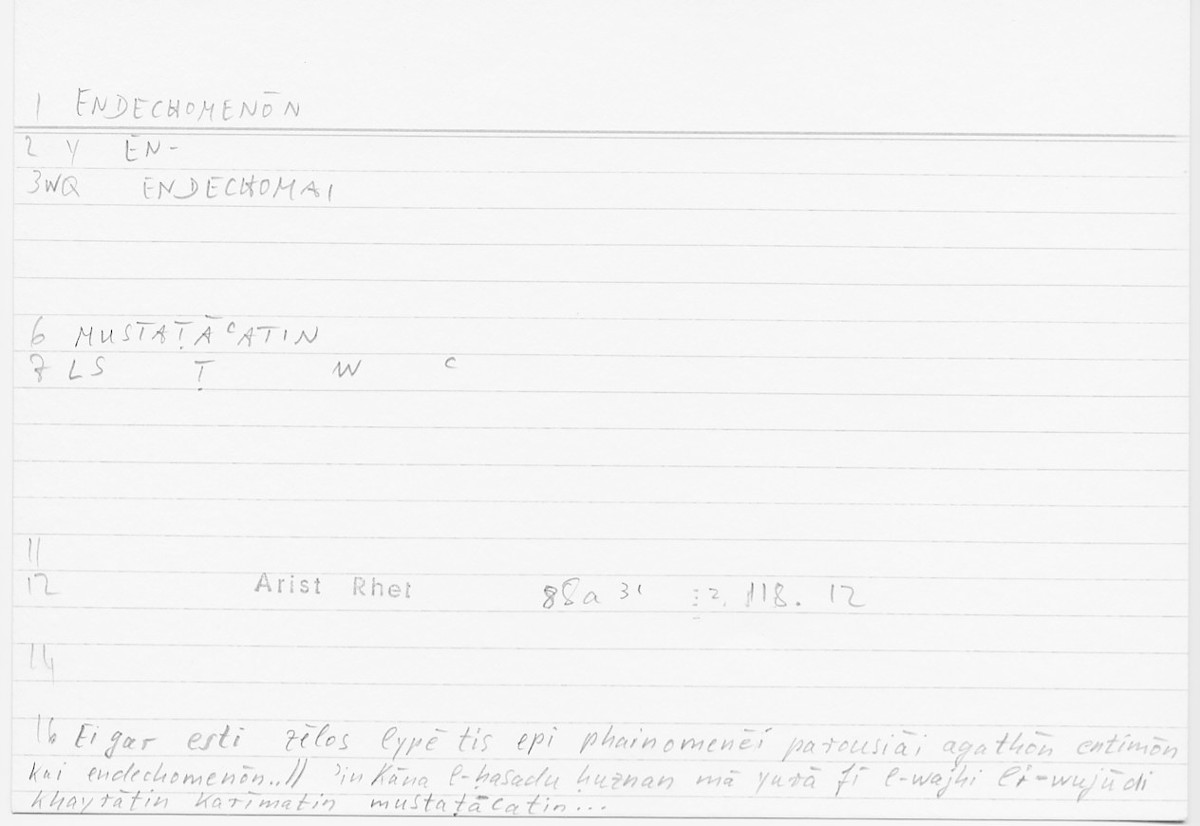 1 ENDECHOMENŌN
2 Y EN-
3WQ ENDECHOMAI
6 MUSTAṬĀᶜATIN
7 LS Ṭ W ᶜ
11
12 Arist Rhet 88a 31 118. 12
14
16 Ei gar esti zēlos lypē tis epi phainomenēi parousiāi agathōn entimōn
kai endechomenōn..// ʾin kāna l-ḥasadu ḥuznan mā yurā fī l-wajhi li-wujūdi
khayrātin karīmatin mustaṭāᶜatin...